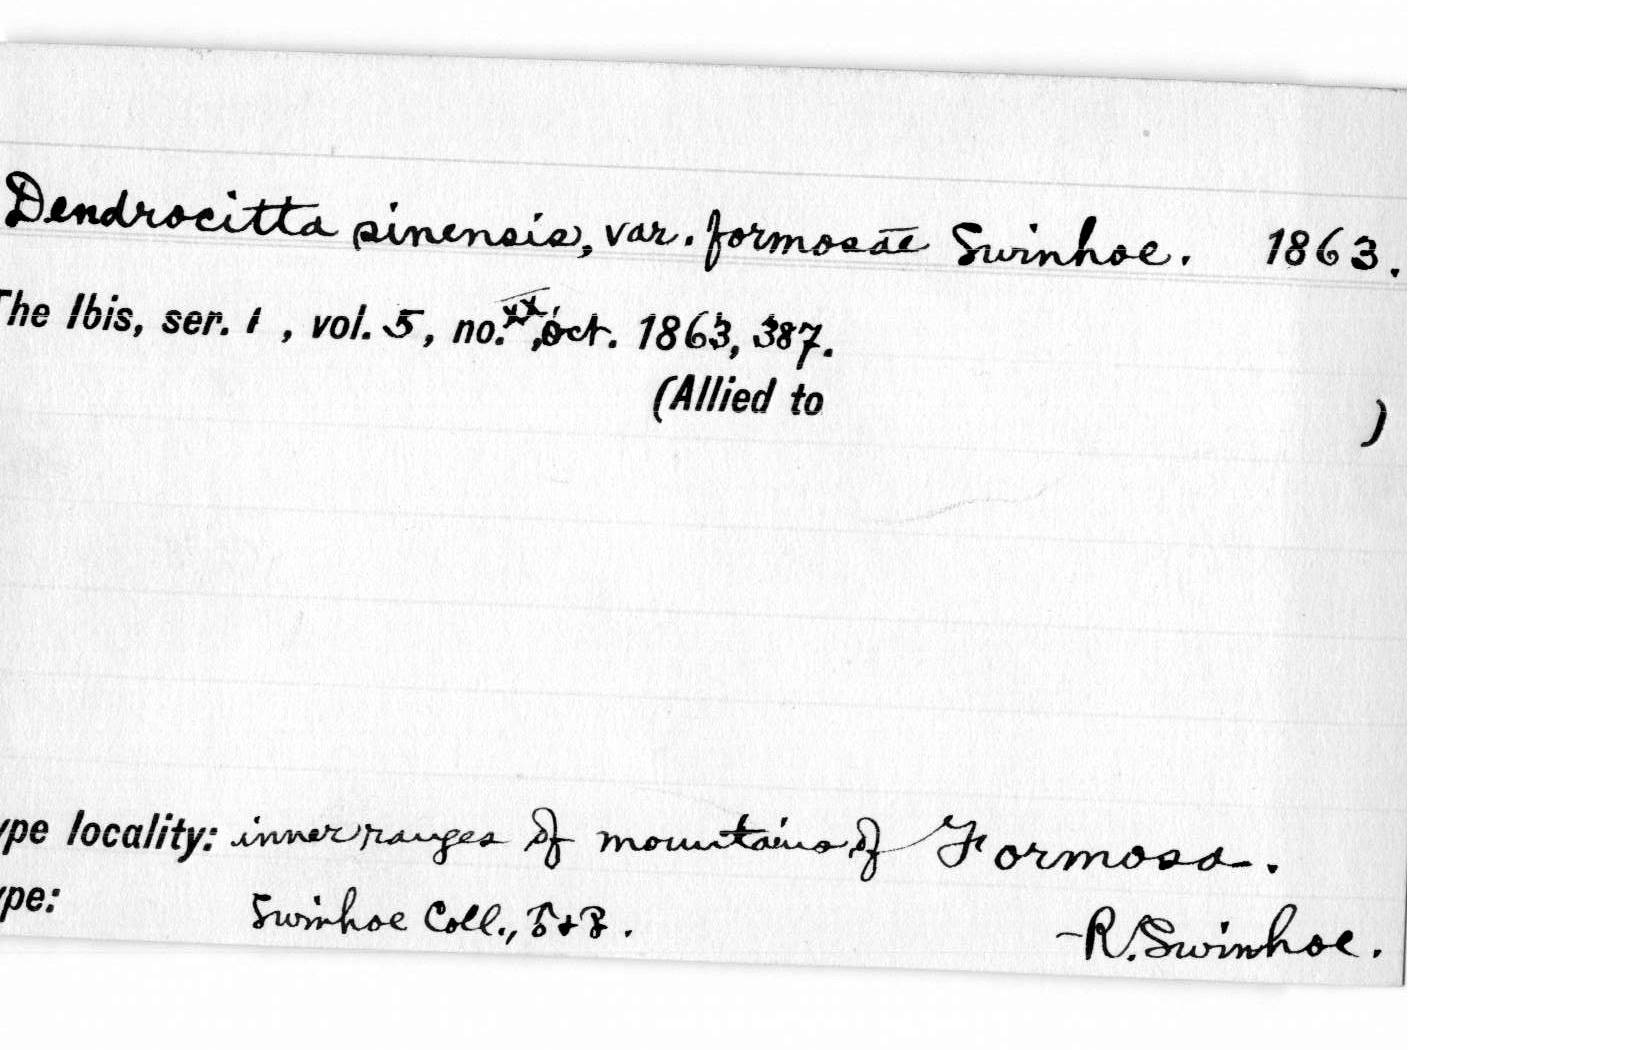 Dendrocitta sinensis, var. formosae Swinhoe. 1863.
The Ibis, ser. 1, vol. 5, no. XX, Oct. 1863, 387.
(Allied to )
ype locality: inner ranges of mountains of Formosa.
ype: Swinhoe Coll.,
-R. Swinhoe.